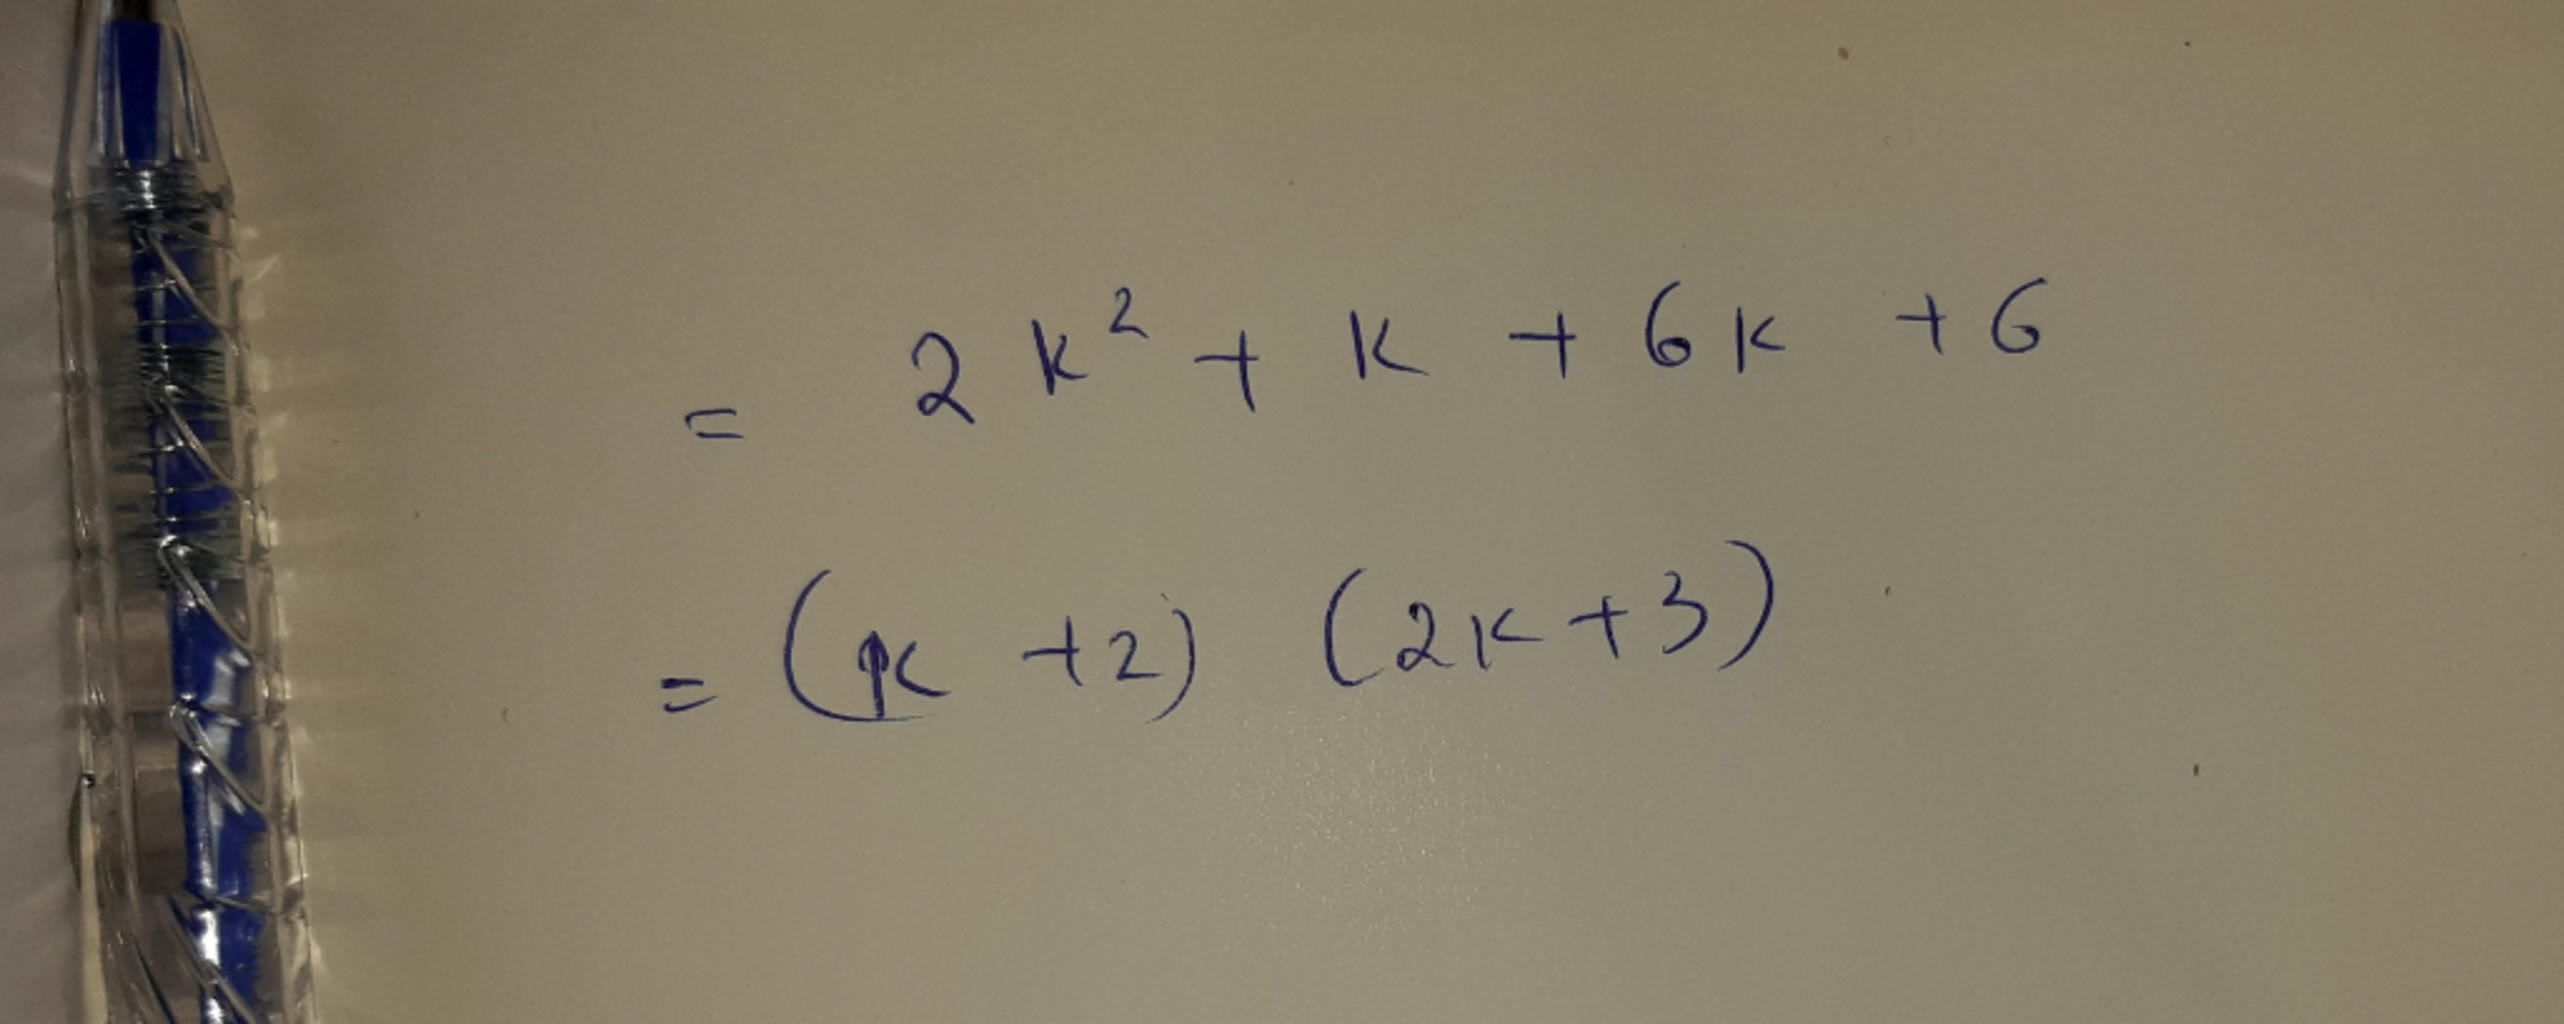 = 2k² + k + 6k + 6
= (k + 2) (2k + 3)